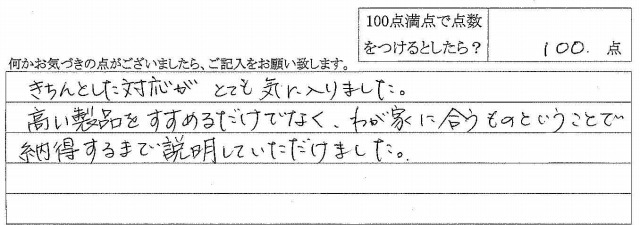 100点満点で点数
をつけるとしたら？
100. 点
何かお気づきの点がございましたら、ご記入をお願い致します。
きちんとした対応が とても気に入りました。
高い製品をすすめるだけでなく、わが家に合うものということで
納得するまで説明していただけました。